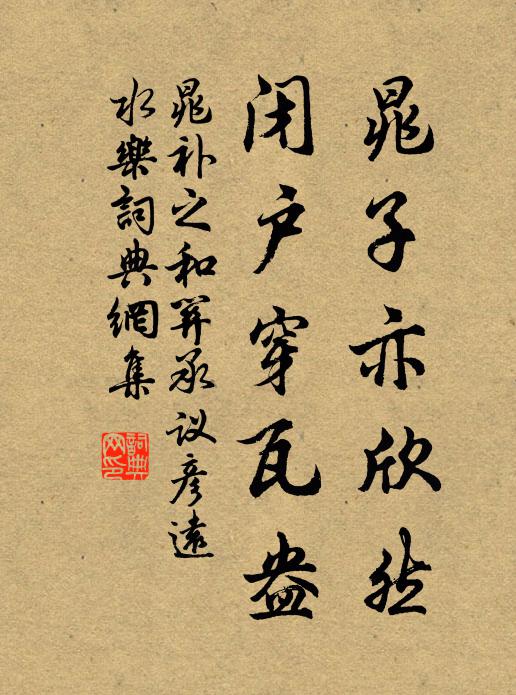 晁子亦欣然
闭户穿瓦盎
晁补之和关承议彦远
水乐词典网集
词典网印